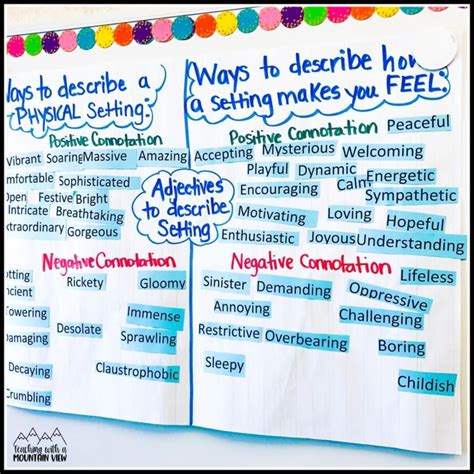 Ways to describe a
PHYSICAL Setting:
Positive Connotation
Vibrant Soaring Massive Amazing
omfortable Sophisticated
Open Festive Bright
Intricate Breathtaking
xtraordinary Gorgeous
Negative Connotation
otting Rickety Gloomy
ncient
Towering Immense
Desolate
amaging Sprawling
Decaying Claustrophobic
Crumbling
Adjectives
to describe
Setting
Ways to describe how
a setting makes you FEEL:
Positive Connotation Peaceful
Accepting Mysterious Welcoming
Playful Dynamic Energetic
Encouraging Calm Sympathetic
Motivating Loving Hopeful
Enthusiastic Joyous Understanding
Negative Connotation Lifeless
Sinister Demanding Oppressive
Annoying Challenging
Restrictive Overbearing Boring
Sleepy Childish
teaching with a
MOUNTAIN VIEW